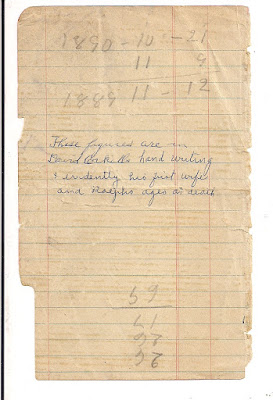 1890 - 10 - 21
11 9
1889 11 - 12
These figures are in
David hand writing
& evidently his first wife
and Ralphs ages at death